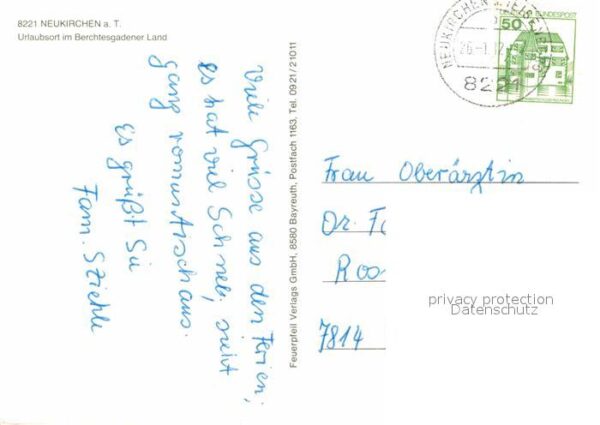 8221 NEUKIRCHEN a. T.
Urlaubsort im Berchtesgadener Land
Viele Grüsse aus den Ferien;
es hat viel Schnee, sieht
ganz romantisch aus.
Es grüßt Sie
Fam. Stiehle
Feuerpfeil Verlags GmbH, 8580 Bayreuth, Postfach 1163, Tel. 0921/21011
NEUKIRCHEN
8221
50
BUNDESPOST
Frau Oberärztin
Dr.
7814
privacy protection
Datenschutz